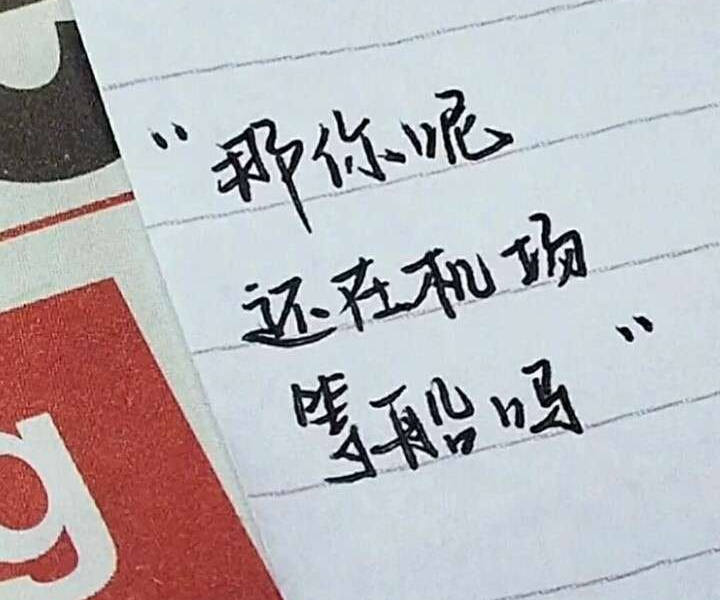 "那你呢
还在机场
等船吗"
g